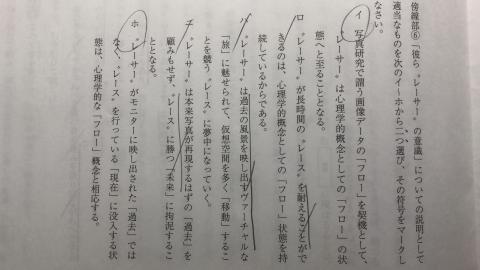 傍線部⑥「彼ら〝レーサー〟の意識」についての説明として
適当なものを次のイ〜ホから二つ選び、その符号をマークし
なさい。
イ 写真研究で謂う画像データの「フロー」を契機として、
〝レーサー〟は心理学的概念としての「フロー」の状
態へと至ることとなる。
ロ 〝レーサー〟が長時間の〝レース〟を耐えることがで
きるのは、心理学的概念としての「フロー」状態を持
続しているからである。
ハ 〝レーサー〟は過去の風景を映し出すヴァーチャルな
「旅」に魅せられて、仮想空間を多く「移動」するこ
とを競う〝レース〟に夢中になっていく。
ニ 〝レーサー〟は本来写真が再現するはずの「過去」を
顧みもせず、〝レース〟に勝つ「未来」に拘泥するこ
ととなる。
ホ 〝レーサー〟がモニターに映し出された「過去」では
なく、〝レース〟を行っている「現在」に没入する状
態は、心理学的な「フロー」概念と相応する。